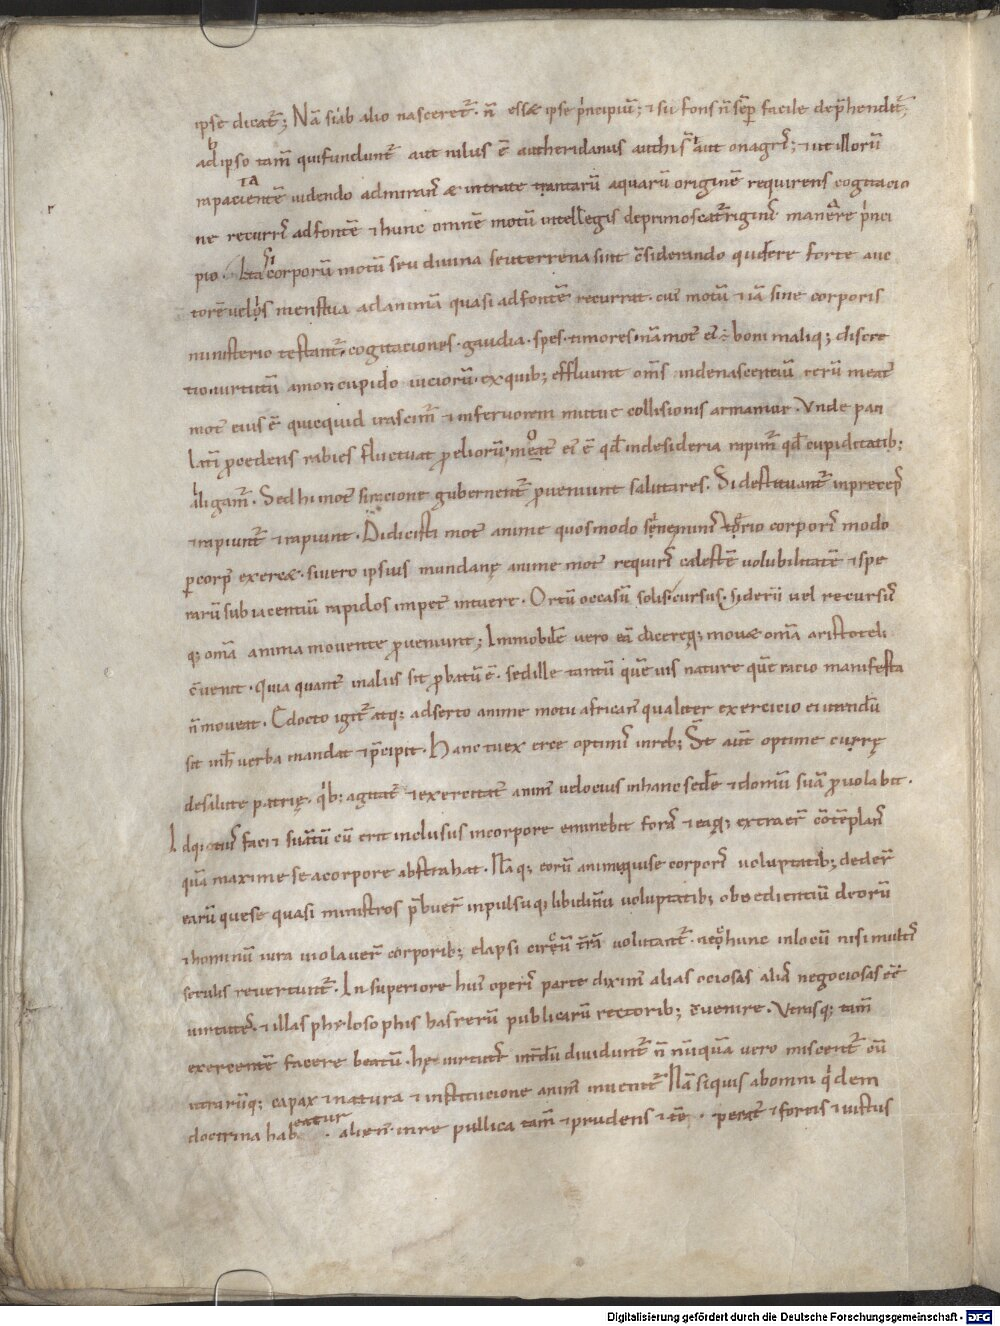 ipse dicat̄; Nā si ab alio nasceret̄. n̄ esset ipse p̍ncipiū; & sic fons n̄ sēp facile dep̄hendit̄;
ab ipso tam̄ qui fundunt̄ aut nilus ē aut heridanus aut his̄ aut onagr̄; & ut illorū
rapacientē uidendo admirans̄ & intrate tantarū aquarū originē requirens cogitacio
ne recurr̄ ad fontē & hunc omnē motū intellegis de primo scaturigin̄ manare p̍nci
pio. Ita corporū motū seu diuina seu terrena sint c̄siderando querere forte auc
torē uelis mens tua ad animā quasi ad fontē recurrat. cui motū & iā sine corporis
ministerio testant̄. cogitaciones. gaudia. spes. timores. nā mot̄ ei ē boni maliq; discre
tio. uirtutū amor. cupido uiciorū. ex quib; effluunt om̄s inde nascentiū rerū meat̄
mot̄ eius ē quicquid irascim̄ & in feruorem mutue collisionis armamur. Vnde pau
latī p̄cedens rabies fluctuat p̄eliorū. mot̄ ei ē qd̄ in desideria rapim̄ qd̄ cupiditatib;
alligam̄. Sed hi mot̄ si racione gubernent̄ p̄ueniunt salutares. Si destituant̄ in precep̄
& rapiunt̄ & rapiunt. Didicisti mot̄ anime quos modo sine ministerio corpor̄ modo
p corp̄ exercet. si uero ipsius mundanę anime mot̄ requir̄ calestē uolubilitatē & spe
rarū subiacentiū rapidos impet̄ intuere. Ortū occasū solis cursus. siderū uel recursū
q; om̄a anima mouente p̄ueniunt; Immobilē uero eā dicereq; mouet om̄a aristoteli
c̄uenit. Quia quant̄ in alus sit p̄batū ē. sed ille tantū quē uis nature quē racio manifesta
n̄ moueat. Edocto igit̄ atq; adserto anime motu african̄ qualiter exercicio ei utendū
sit in h̄ uerba mandat & p̄cipit. Hanc tu exerce optim̄ in reb; S̄t aut̄ optime currę
de salute patrię. q̍b; agitat̄ & exercitat̄ anim̄ uelocius in hanc sedē & domū suā p̄uolabit.
Idq; cius̄ faciet si iā tū cū erit inclusus in corpore eminebit foras̄ & ea q; extra er̄ c̄tēplans̄
quā maxime se a corpore abstrahat. Nāq; eorū animi qui se corpor̄ uoluptatib; deder̄
earū que se quasi ministros p̄buer̄ inpulsuq; libidinū uoluptatib; oboedientiū deorū
& hominū iura uiolauer̄ corporib; elapsi circū t̄rā uolutant̄. nec hunc in locū nisi multis̄
seculis reuertunt̄. In superiore hui̍ oper̄ parte dixim̄ alias ociosas alias̄ negociosas ee̅
uirtutes̄. & illas phylosophis has rerū publicarū rectorib; c̄uenire. Vtrasq; tam̄
exercentē facere beatū. hę uirtutes̄ int̄dū diuidunt̄ n̄ nūquā uero miscent̄ cū
utrarūq; capax & natura & institucione anim̄ inuenit̄. Nā siquis ab omni q̍dem
doctrina habeatur. alien̄. in re pullica tam̄ & prudens & tē. perat̄ & fortis & iustus